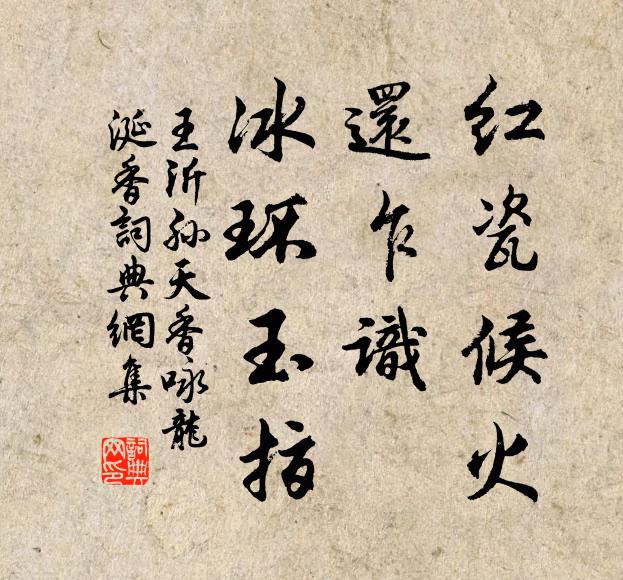 红瓷候火
還乍識
冰环玉指
王沂孙天香咏龍
涎香詞典網集
詞典网印